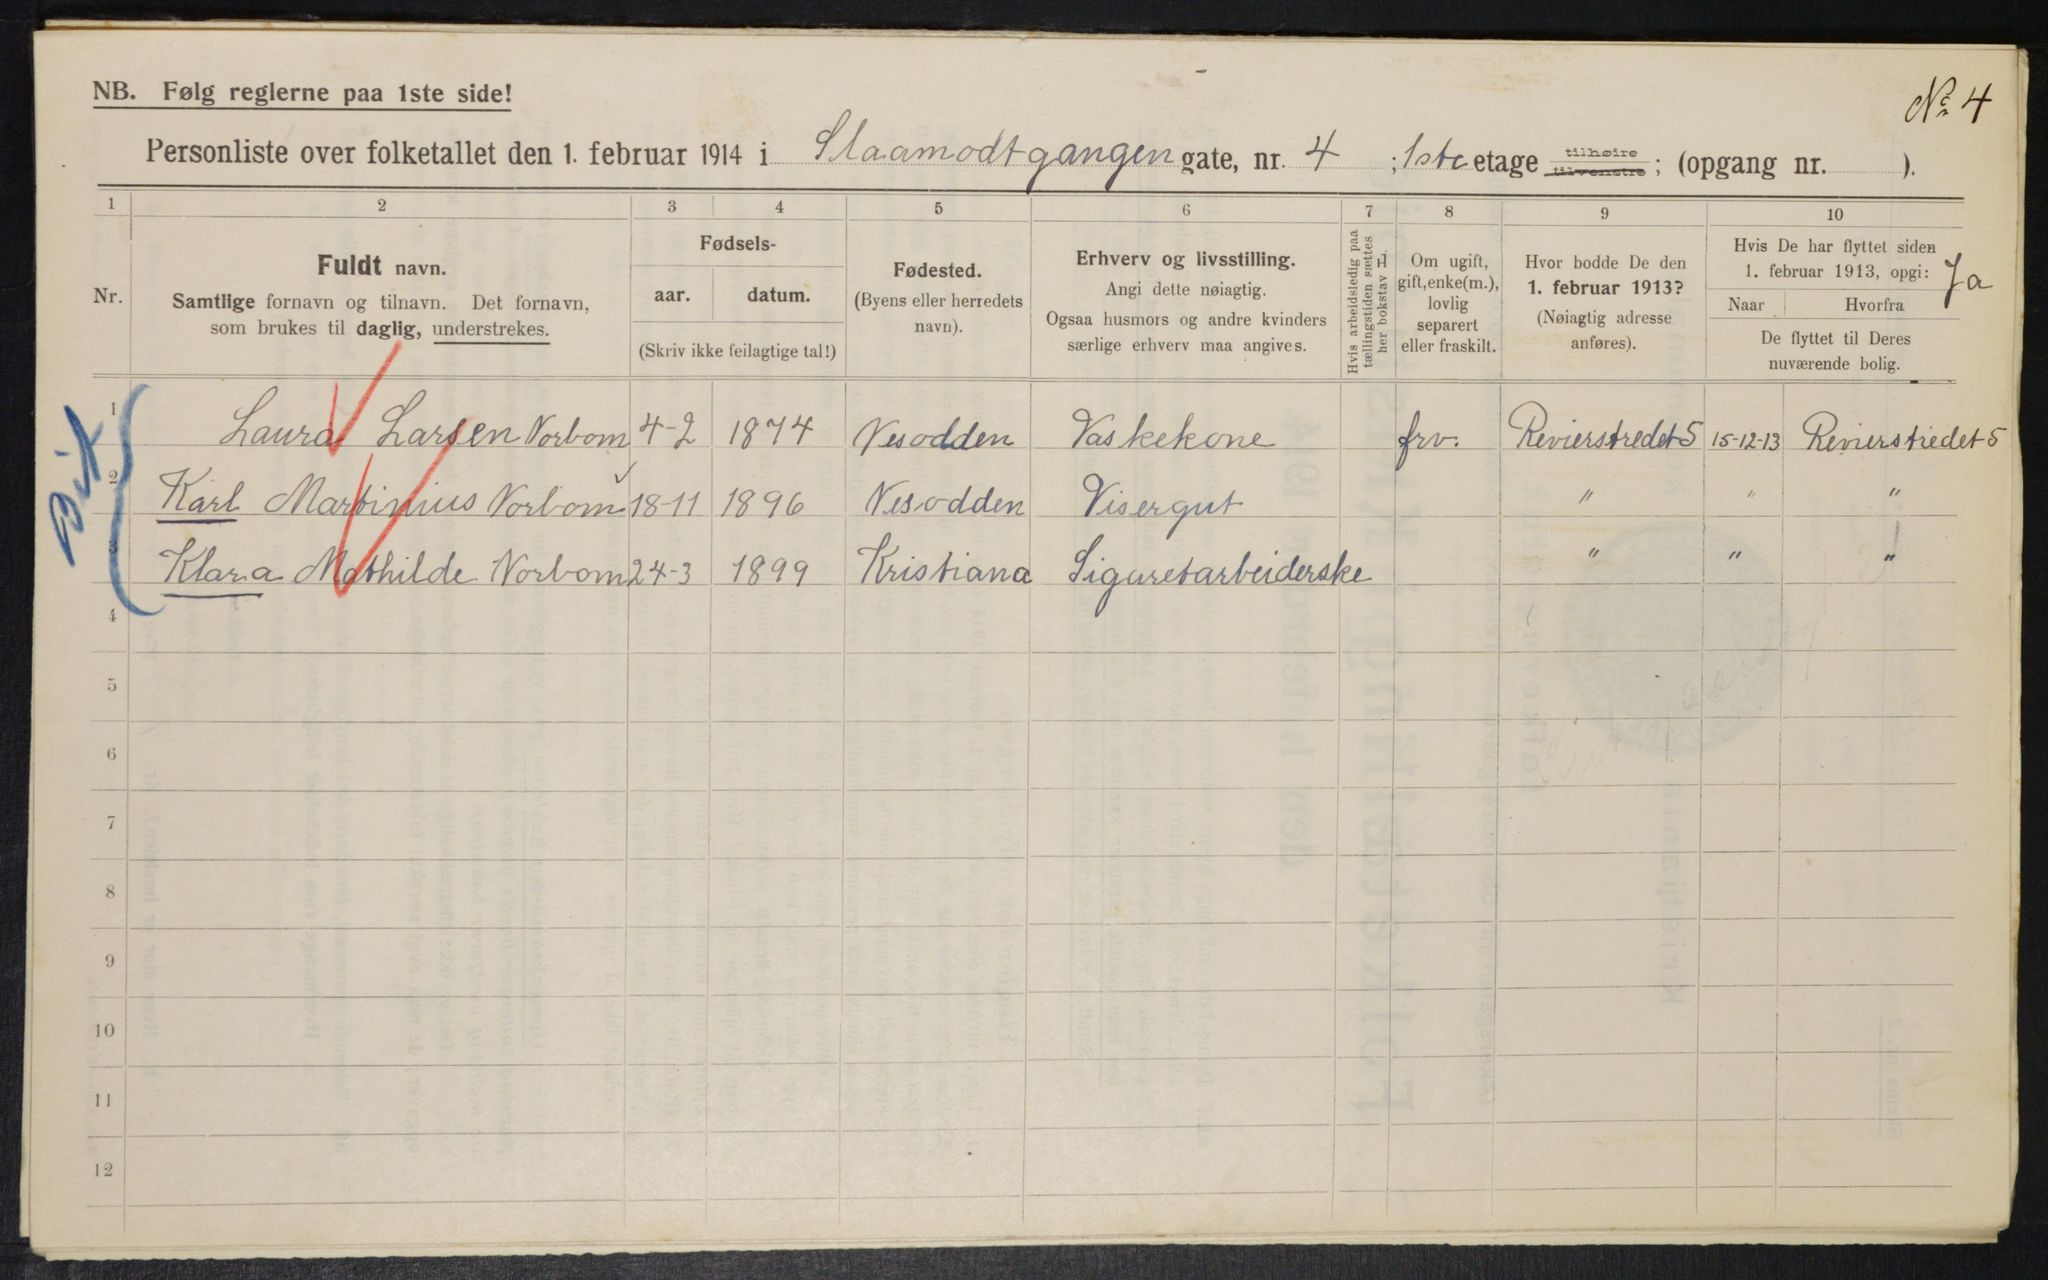 NB. Følg reglerne paa 1ste side!
No 4
Personliste over folketallet den 1. februar 1914 i Slaamodtgangen gate, nr. 4 ; 1ste etage tilhøire tilvenstre ; (opgang nr. ).
1 2 3 4 5 6 7 8 9 10
Nr.
Fuldt navn.
Samtlige fornavn og tilnavn. Det fornavn,
som brukes til daglig, understrekes.
Fødsels-
aar. datum.
(Skriv ikke feilagtige tal!)
Fødested.
(Byens eller herredets
navn).
Erhverv og livsstilling.
Angi dette nøiagtig.
Ogsaa husmors og andre kvinders
særlige erhverv maa angives.
Hvis arbeidsledig paa
tællingstiden sættes
her bokstav L.
Om ugift,
gift, enke(m.),
lovlig
separert
eller fraskilt.
Hvor bodde De den
1. februar 1913?
(Nøiagtig adresse
anføres).
Hvis De har flyttet siden
1. februar 1913, opgi: Ja
Naar Hvorfra
De flyttet til Deres
nuværende bolig.
1 Laura Larsen Norbom 4-2 1874 Nesodden Vaskekone frv. Revierstredet 5 15-12-13 Revierstredet 5
2 Karl Martinius Norbom 18-11 1896 Nesodden Visergut " " "
3 Klara Mathilde Norbom 24-3 1899 Kristiana Sigaretarbeiderske " " "
4
5
6
7
8
9
10
11
12